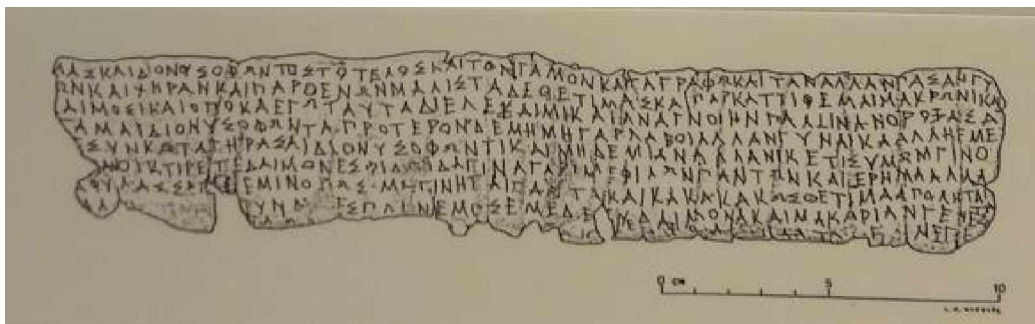 ΜΑΣΚΑΙΔΙΟΝΥΣΟΦΩΝΤΟΣΤΟΤΕΛΟΣΚΑΙΤΟΝΓΑΜΟΝΚΑΤΑΓΡΑΦΩΚΑΙΤΑΝΑΛΛΑΝΠΑΣΑΝΓΥ
ΩΝΚΑΙΧΗΡΑΝΚΑΙΠΑΡΘΕΝΩΝΜΑΛΙΣΤΑΔΕΘΕΤΙΜΑΣΚΑΙΠΑΡΚΑΤΤΙΘΕΜΑΙΜΑΚΡΩΝΙΚΑΙ
ΔΑΙΜΟΣΙΚΑΙΟΠΟΚΑΕΓΩΤΑΥΤΑΔΙΕΛΕΞΑΙΜΙΚΑΙΑΝΑΓΝΟΙΗΝΠΑΛΙΝΑΝΟΡΟΞΑΣΑ
ΓΑΜΑΙΔΙΟΝΥΣΟΦΩΝΤΑΠΡΟΤΕΡΟΝΔΕΜΗΜΗΓΑΡΛΑΒΟΙΑΛΛΑΝΓΥΝΑΙΚΑΑΛΛΗΕΜΕ
ΕΣΥΝΚΑΤΑΓΗΡΑΣΑΙΔΙΟΝΥΣΟΦΩΝΤΙΚΑΙΜΗΔΕΜΙΑΝΑΛΛΑΝΙΚΕΤΙΣΥΜΩΜΓΙΝΟ
ΑΝΟΙΚΤΙΡΕΤΕΔΑΙΜΟΝΕΣΦΙΛΟΙΔΑΠΙΝΑΓΑΡΙΜΕΦΙΛΩΝΠΑΝΤΩΝΚΑΙΕΡΗΜΑΑΛΛΑ
ΑΦΥΛΑΣΣΕΤΕΕΜΙΝΟΠΩΣΜΗΓΙΝΗΤΑΙΤΑΥΤΑΚΑΙΚΑΚΑΚΑΚΩΣΘΕΤΙΜΑΑΠΟΛΗΤΑΙ
ΑΛ ΥΝΜ ΕΣΠΛΗΝΕΜΟΣΕΜΕΔΕ ΕΥΔΑΙΜΟΝΑΚΑΙΜΑΚΑΡΙΑΝΓΕΝΕΣ
ΝΕΓΕ
0 CM 5 10